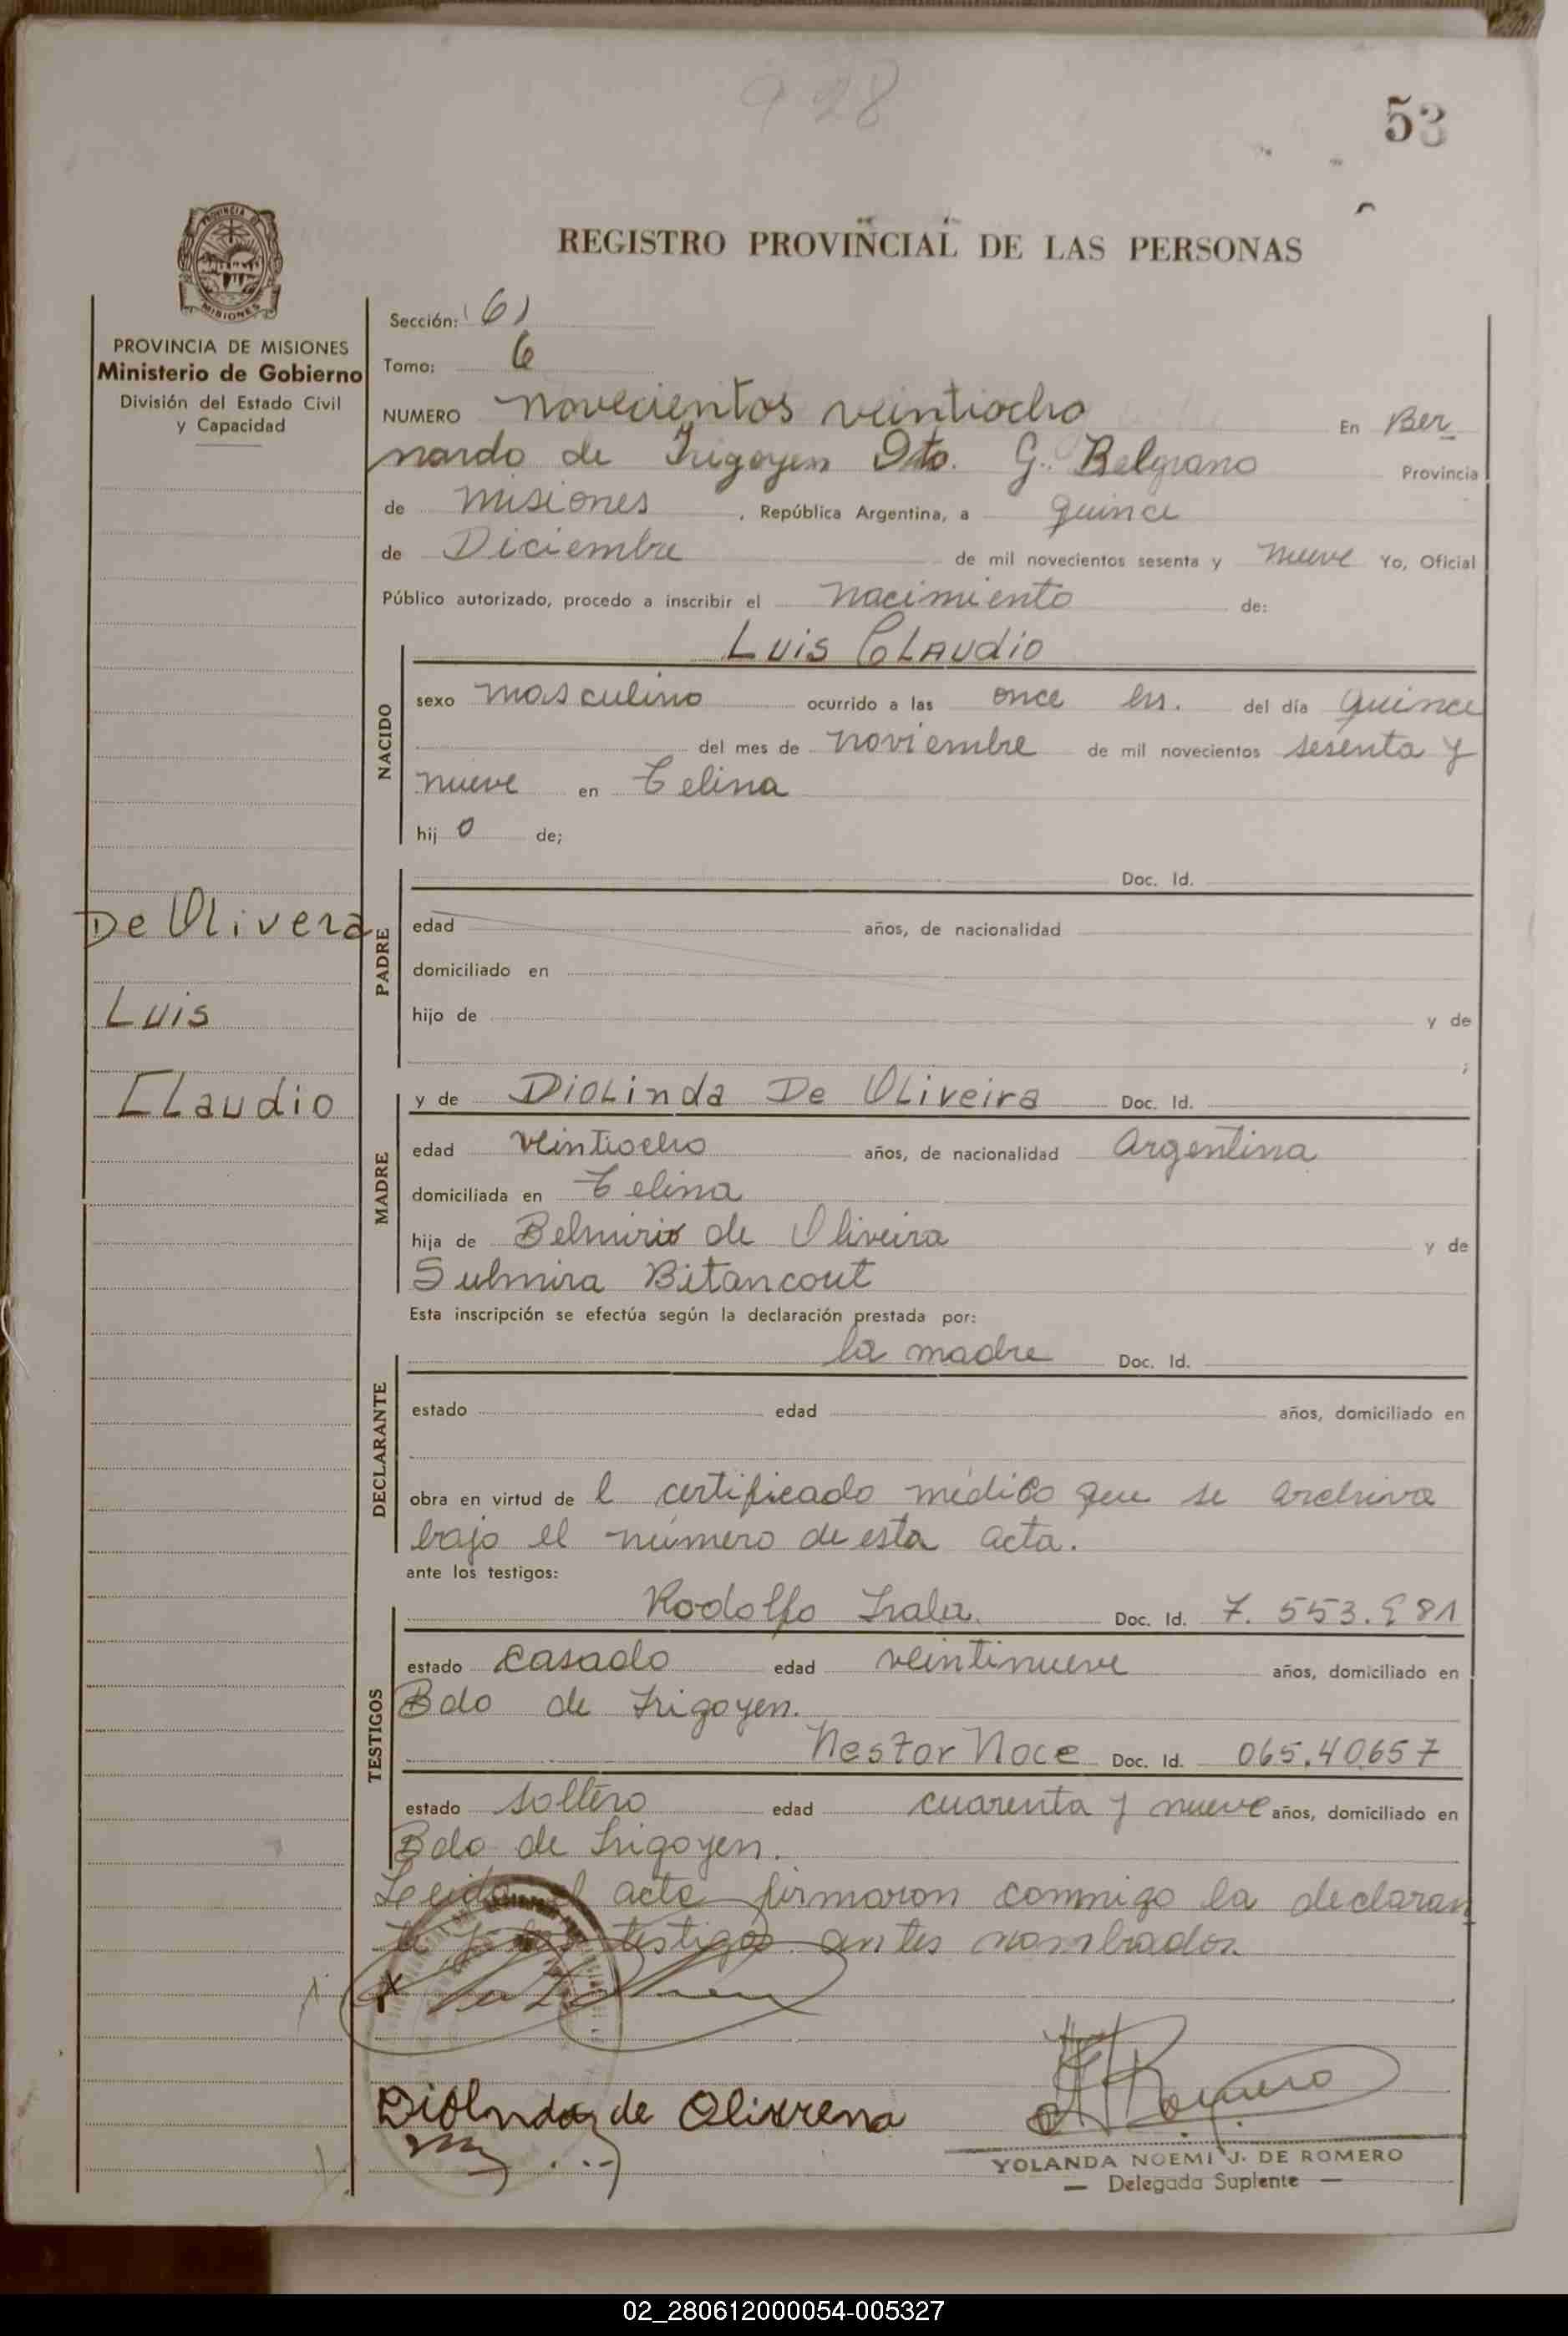 928
53
REGISTRO PROVINCIAL DE LAS PERSONAS
PROVINCIA DE
MISIONES
PROVINCIA DE MISIONES
Ministerio de Gobierno
División del Estado Civil
y Capacidad
De Olivera
Luis
Claudio
Sección: 61
Tomo: 6
NUMERO novecientos veintiocho En Ber
nardo de Irigoyen Dto. G. Belgrano Provincia
de Misiones, República Argentina, a quince
de Diciembre de mil novecientos sesenta y nueve Yo, Oficial
Público autorizado, procedo a inscribir el nacimiento de:
Luis Claudio
NACIDO
sexo masculino ocurrido a las once hs. del día quince
del mes de noviembre de mil novecientos sesenta y
nueve en Celina
hijo de;
PADRE
Doc. Id.
edad años, de nacionalidad
domiciliado en
hijo de y de
;
MADRE
y de Diolinda De Oliveira Doc. Id.
edad veintiocho años, de nacionalidad Argentina
domiciliada en Celina
hija de Belmirio de Oliveira y de
Sulmira Bitancout
Esta inscripción se efectúa según la declaración prestada por:
DECLARANTE
la madre Doc. Id.
estado edad años, domiciliado en
obra en virtud del certificado médico que se archiva
bajo el número de esta acta.
ante los testigos:
TESTIGOS
Rodolfo Irala. Doc. Id. 7.553.981
estado casado edad veintinueve años, domiciliado en
Bdo de Irigoyen.
Nestor Noce Doc. Id. 065.40657
estado soltero edad cuarenta y nueve años, domiciliado en
Bdo de Irigoyen.
Leida el acta firmaron conmigo la declaran
te y los testigos antes nombrados.
Diolnda de Olivrena
YOLANDA NOEMI J. DE ROMERO
— Delegada Suplente —
02_280612000054-005327